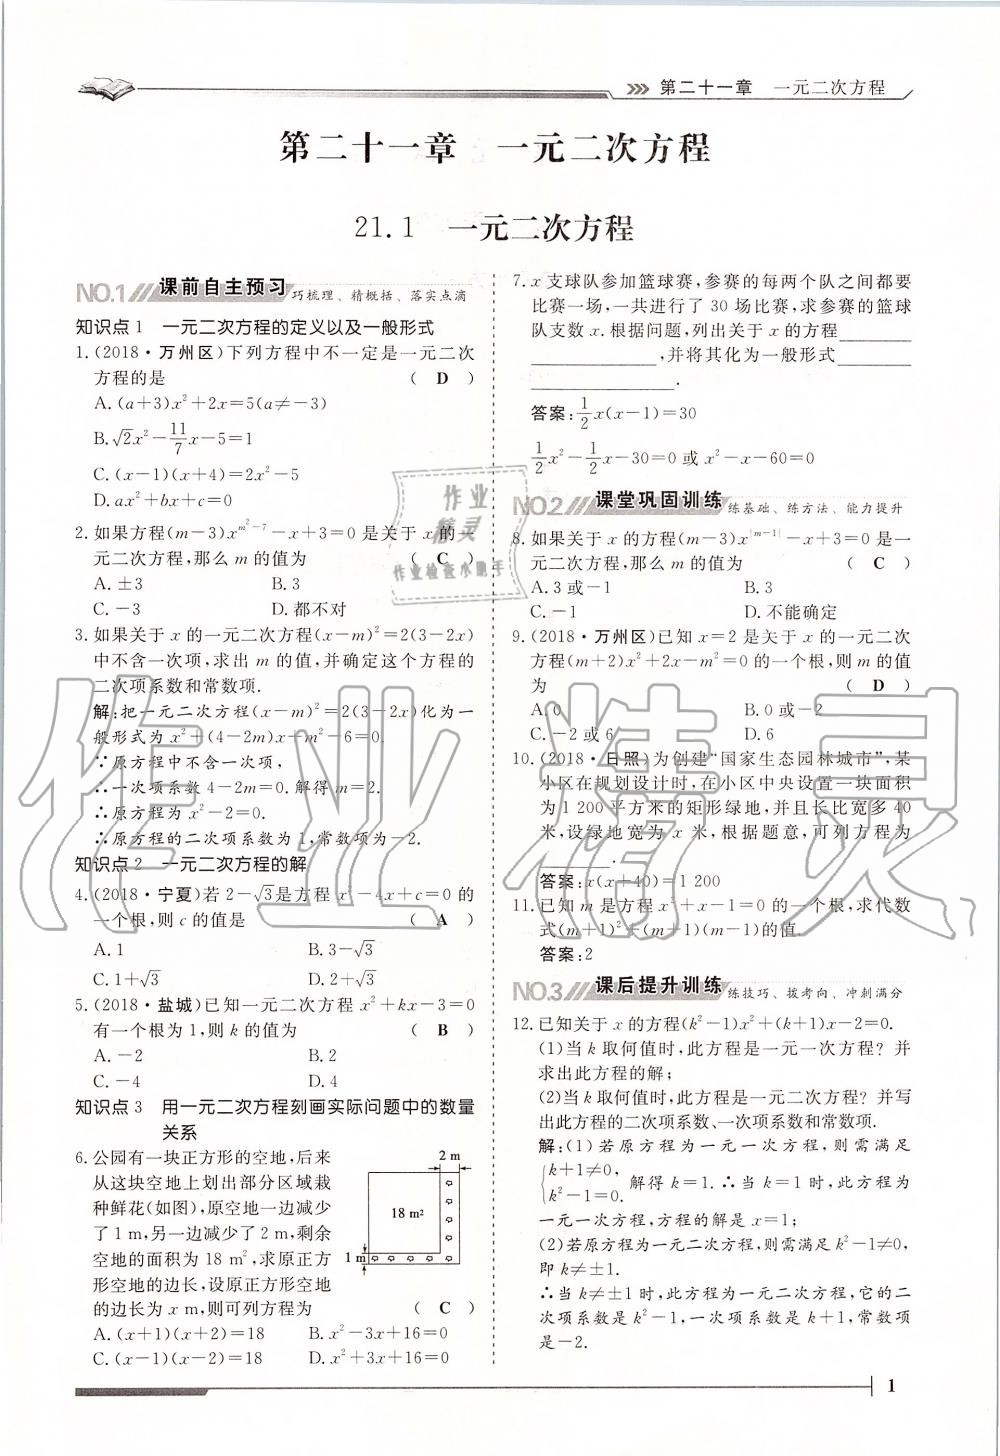 第二十一章　一元二次方程
第二十一章　一元二次方程
21.1　一元二次方程
NO.1 课前自主预习 巧梳理、精概括、落实点滴
知识点1　一元二次方程的定义以及一般形式
1.(2018·万州区)下列方程中不一定是一元二次
方程的是（ D ）
A.(a+3)x²+2x=5(a≠-3)
B.√2x²-11/7x-5=1
C.(x-1)(x+4)=2x²-5
D.ax²+bx+c=0
2.如果方程(m-3)x^(m²-7)-x+3=0是关于x的一
元二次方程,那么m的值为（ C ）
A.±3　B.3
C.-3　D.都不对
3.如果关于x的一元二次方程(x-m)²=2(3-2x)
中不含一次项,求出m的值,并确定这个方程的
二次项系数和常数项.
解:把一元二次方程(x-m)²=2(3-2x)化为一
般形式为x²+(4-2m)x+m²-6=0.
∵原方程中不含一次项,
∴一次项系数4-2m=0.解得m=2.
∴原方程为x²-2=0.
∴原方程的二次项系数为1,常数项为-2.
知识点2　一元二次方程的解
4.(2018·宁夏)若2-√3是方程x²-4x+c=0的
一个根,则c的值是（ A ）
A.1　B.3-√3
C.1+√3　D.2+√3
5.(2018·盐城)已知一元二次方程x²+kx-3=0
有一个根为1,则k的值为（ B ）
A.-2　B.2
C.-4　D.4
知识点3　用一元二次方程刻画实际问题中的数量
关系
6.公园有一块正方形的空地,后来
从这块空地上划出部分区域栽
种鲜花(如图),原空地一边减少
了1 m,另一边减少了2 m,剩余
空地的面积为18 m²,求原正方
形空地的边长,设原正方形空地
的边长为x m,则可列方程为（ C ）
2 m
18 m²
1 m
A.(x+1)(x+2)=18　B.x²-3x+16=0
C.(x-1)(x-2)=18　D.x²+3x+16=0
7.x支球队参加篮球赛,参赛的每两个队之间都要
比赛一场,一共进行了30场比赛,求参赛的篮球
队支数x.根据问题,列出关于x的方程________
______________,并将其化为一般形式________
________________.
答案:1/2x(x-1)=30
1/2x²-1/2x-30=0或x²-x-60=0
NO.2 课堂巩固训练 练基础、练方法、能力提升
8.如果关于x的方程(m-3)x^|m-1|-x+3=0是一
元二次方程,那么m的值为（ C ）
A.3或-1　B.3
C.-1　D.不能确定
9.(2018·万州区)已知x=2是关于x的一元二次
方程(m+2)x²+2x-m²=0的一个根,则m的值
为（ D ）
A.0　B.0或-2
C.-2或6　D.6
10.(2018·日照)为创建“国家生态园林城市”,某
小区在规划设计时,在小区中央设置一块面积
为1 200平方米的矩形绿地,并且长比宽多40
米,设绿地宽为x米,根据题意,可列方程为
________.
答案:x(x+40)=1 200
11.已知m是方程x²+x-1=0的一个根,求代数
式(m+1)²+(m+1)(m-1)的值.
答案:2
NO.3 课后提升训练 练技巧、拔考向、冲刺满分
12.已知关于x的方程(k²-1)x²+(k+1)x-2=0.
(1)当k取何值时,此方程是一元一次方程？并
求出此方程的解;
(2)当k取何值时,此方程是一元二次方程？并写
出此方程的二次项系数、一次项系数和常数项.
解:(1)若原方程为一元一次方程,则需满足
{k+1≠0,
k²-1=0. 解得k=1.∴当k=1时,此方程为
一元一次方程,方程的解是x=1;
(2)若原方程为一元二次方程,则需满足k²-1≠0,
即k≠±1.
∴当k≠±1时,此方程为一元二次方程,它的二
次项系数是k²-1,一次项系数是k+1,常数项
是-2.
1
作业
精灵
作业检查小助手
作业精灵